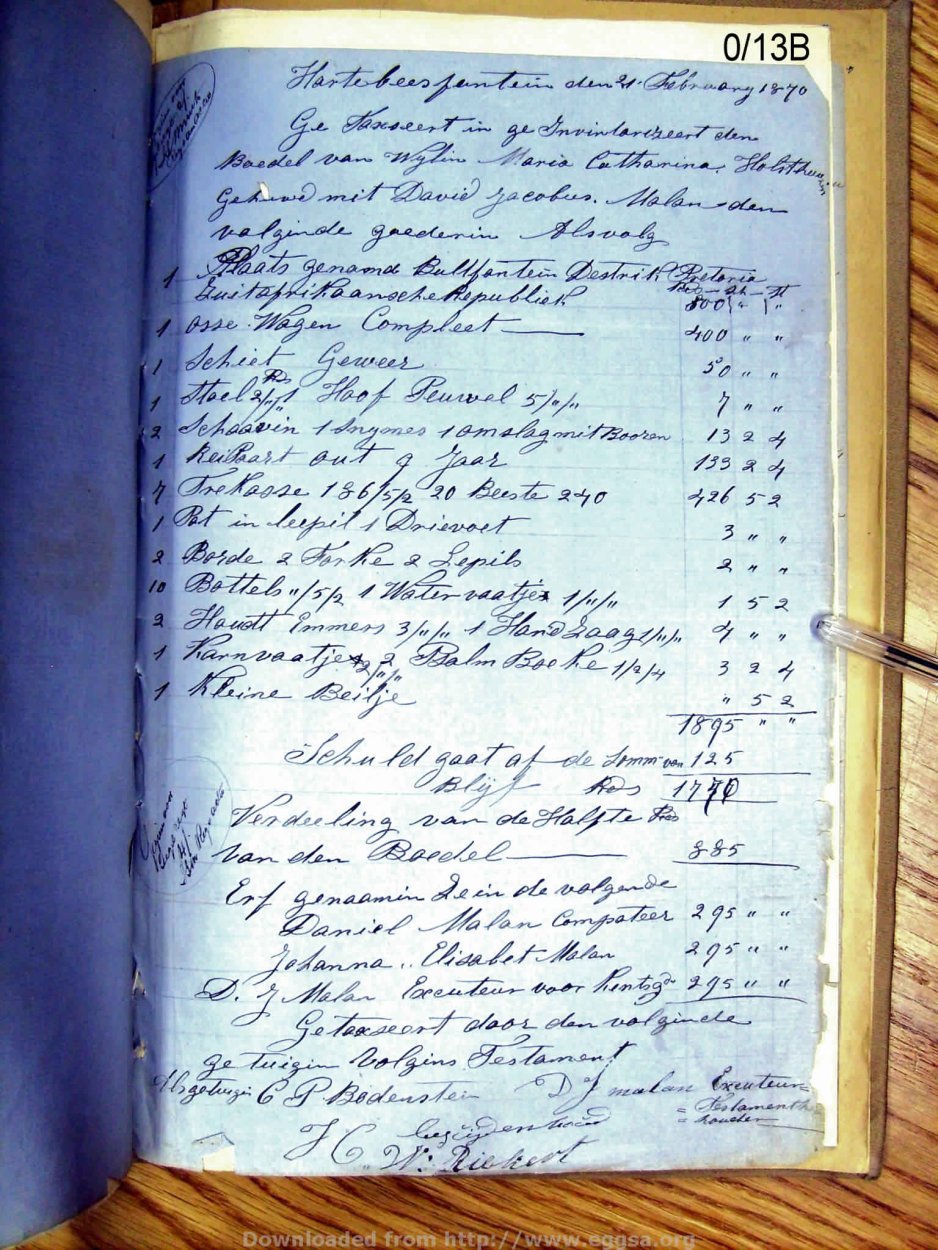 0/13B
Hartebeesfontein den 21 February 1870
Ge Taxseert in ge Invintarizeert den
Boedel van Wylin Maria Catharina. Holsthuizen
Gehuwd mit David Jacobus. Malan den
volginde goederin Alsvolg
1 Plaats genamd Bultfontein Destrikt Pretoria
Zuitafrikaansche Republiek Rds - Sh - St 800 " "
1 osse. Wagen Compleet — 400 " "
1 Schiet Geweer 50 " "
1 Stoel 2/"/" 1 Hoof Peuwel 5/"/" 7 " "
2 Schaavin 1 Snymes 1 omslag mit Booren 13 2 4
1 Rei Paart out 9 Jaar 133 2 4
7 Trekosse 186/5/2 20 Beeste 240 426 5 2
1 Pot in leepil 1 Drievoet 3 " "
2 Borde 2 Forke 2 Lepils 2 " "
10 Bottels "/5/2 1 Water vaatjes 1/"/" 1 5 2
2 Houdt Emmers 3/"/" 1 Hand Zaag 1/"/" 4 " "
1 Karnvaatje 2/"/" 2 Psalm Boeke 1/2/4 3 2 4
1 Kleine Beitje " 5 2
1895 " "
Schuld gaat af de Somm van 125
Blijf Rds 1770
Verdeeling van de Halfte Rds
van den Boedel — 885
Erf genaamin Zein de volgende
Daniel Malan Compateer 295 " "
Johanna .. Elisabet Malan 295 " "
D. J Malan Executeur voor 295 " "
Getaxseert door den volginde
getuigin Volgins Testament
Als getuigin C P Bodenstein D J malan Executeur
= Testamenth
= houder
J C Bezuidenhoud
W: Riekert
Downloaded from http://www.eggsa.org